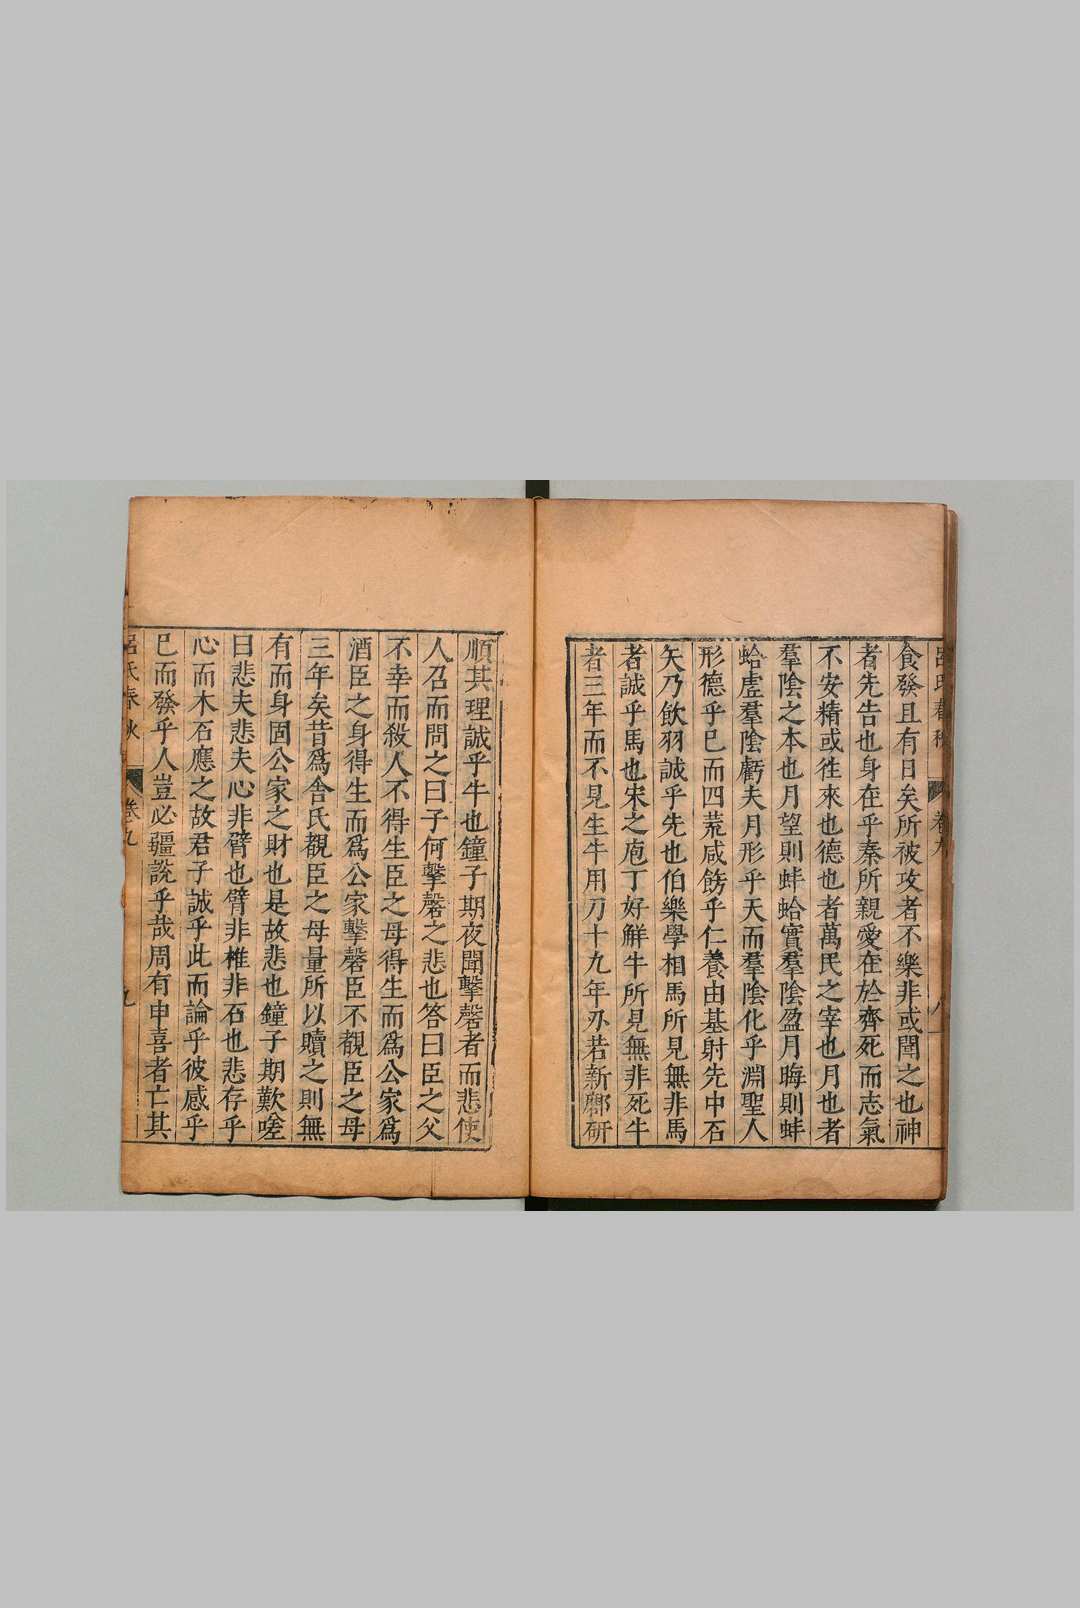 呂氏春秋 卷九 八
食發且有日矣所被攻者不樂非或聞之也神
者先告也身在乎秦所親愛在於齊死而志氣
不安精或徃來也德也者萬民之宰也月也者
羣陰之本也月望則蚌蛤實羣陰盈月晦則蚌
蛤虛羣陰虧夫月形乎天而羣陰化乎淵聖人
形德乎已而四荒咸飭乎仁養由基射先中石
矢乃飲羽誠乎先也伯樂學相馬所見無非馬
者誠乎馬也宋之庖丁好解牛所見無非死牛
者三年而不見生牛用刀十九年刃若新𠠫研
順其理誠乎牛也鐘子期夜聞擊磬者而悲使
人召而問之曰子何擊磬之悲也答曰臣之父
不幸而殺人不得生臣之母得生而爲公家爲
酒臣之身得生而爲公家擊磬臣不覩臣之母
三年矣昔爲舍氏覩臣之母量所以贖之則無
有而身固公家之財也是故悲也鐘子期歎嗟
曰悲夫悲夫心非臂也臂非椎非石也悲存乎
心而木石應之故君子誠乎此而論乎彼感乎
已而發乎人豈必彊說乎哉周有申喜者亡其
呂氏春秋 卷九 九